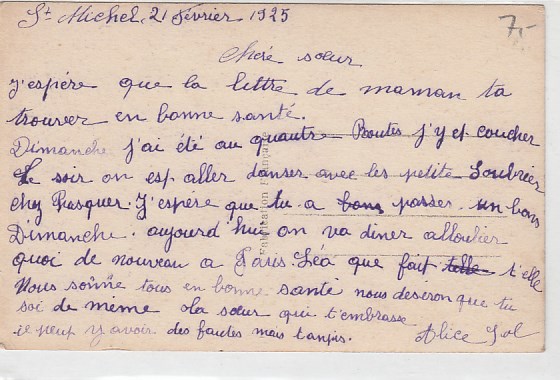 St Michel, 21 février 1925
7,-
Chére sœur
j'espére que la lettre de maman ta
trouver en bonne santé.
Dimanche j'ai été au quautre Routes j'y et coucher
Le soir on est aller danser avec les petite Loubrier
chez Pasquer. J'espére que tu a bons passer un bons
Dimanche. aujourd hui on va diner
quoi de nouveau a Paris. Léa que fait telle t'elle
Nous somme tous en bonne santé nous desiron que tu
soi de même ola sœur qui t'embrasse
il peut y avoir des fautes mais tanpis. Alice
Fabrication Française